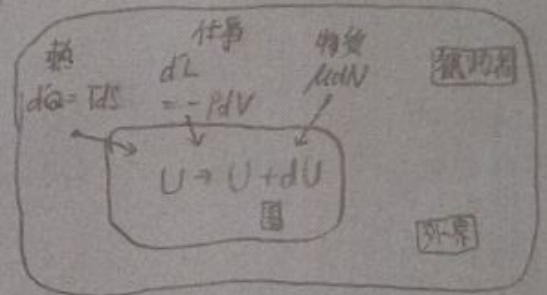 熱
d'Q=TdS
仕事
d'L
=-PdV
物質
μdN
U→U+dU
系
外界